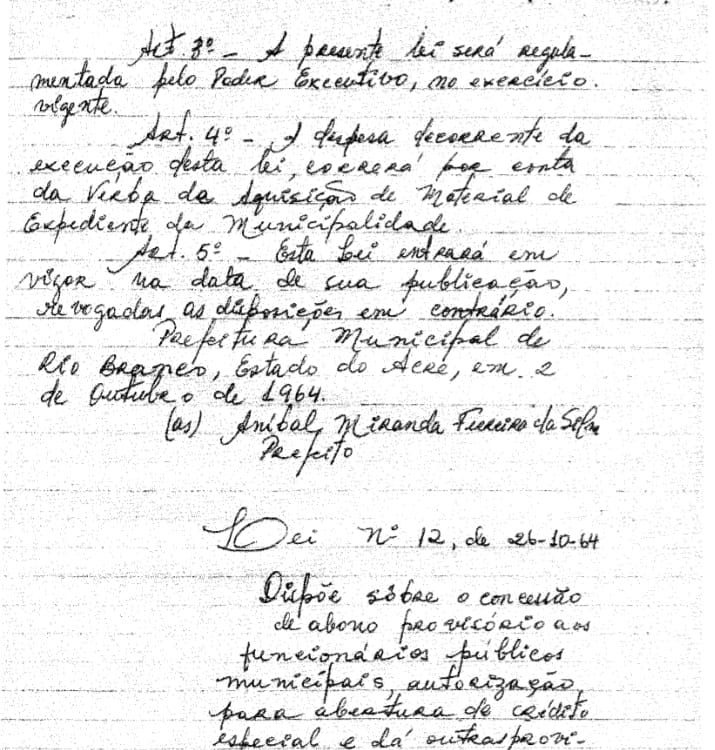 Art. 3º - A presente lei será regula-
mentada pelo Poder Executivo, no exercício.
vigente.
Art. 4º - A despesa decorrente da
execução desta lei, correrá por conta
da Verba de Aquisição de Material de
Expediente da Municipalidade.
Art. 5º - Esta Lei entrará em
vigor na data de sua publicação,
revogadas as disposições em contrário.
Prefeitura Municipal de
Rio Branco, Estado do Acre, em 2
de Outubro de 1964.
(as) Aníbal Miranda Ferreira da Silva
Prefeito
Lei Nº 12, de 26-10-64
Dispõe sôbre o concessão
de abono provisório aos
funcionários públicos
municipais, autorização
para abertura de crédito
especial e dá outras provi-